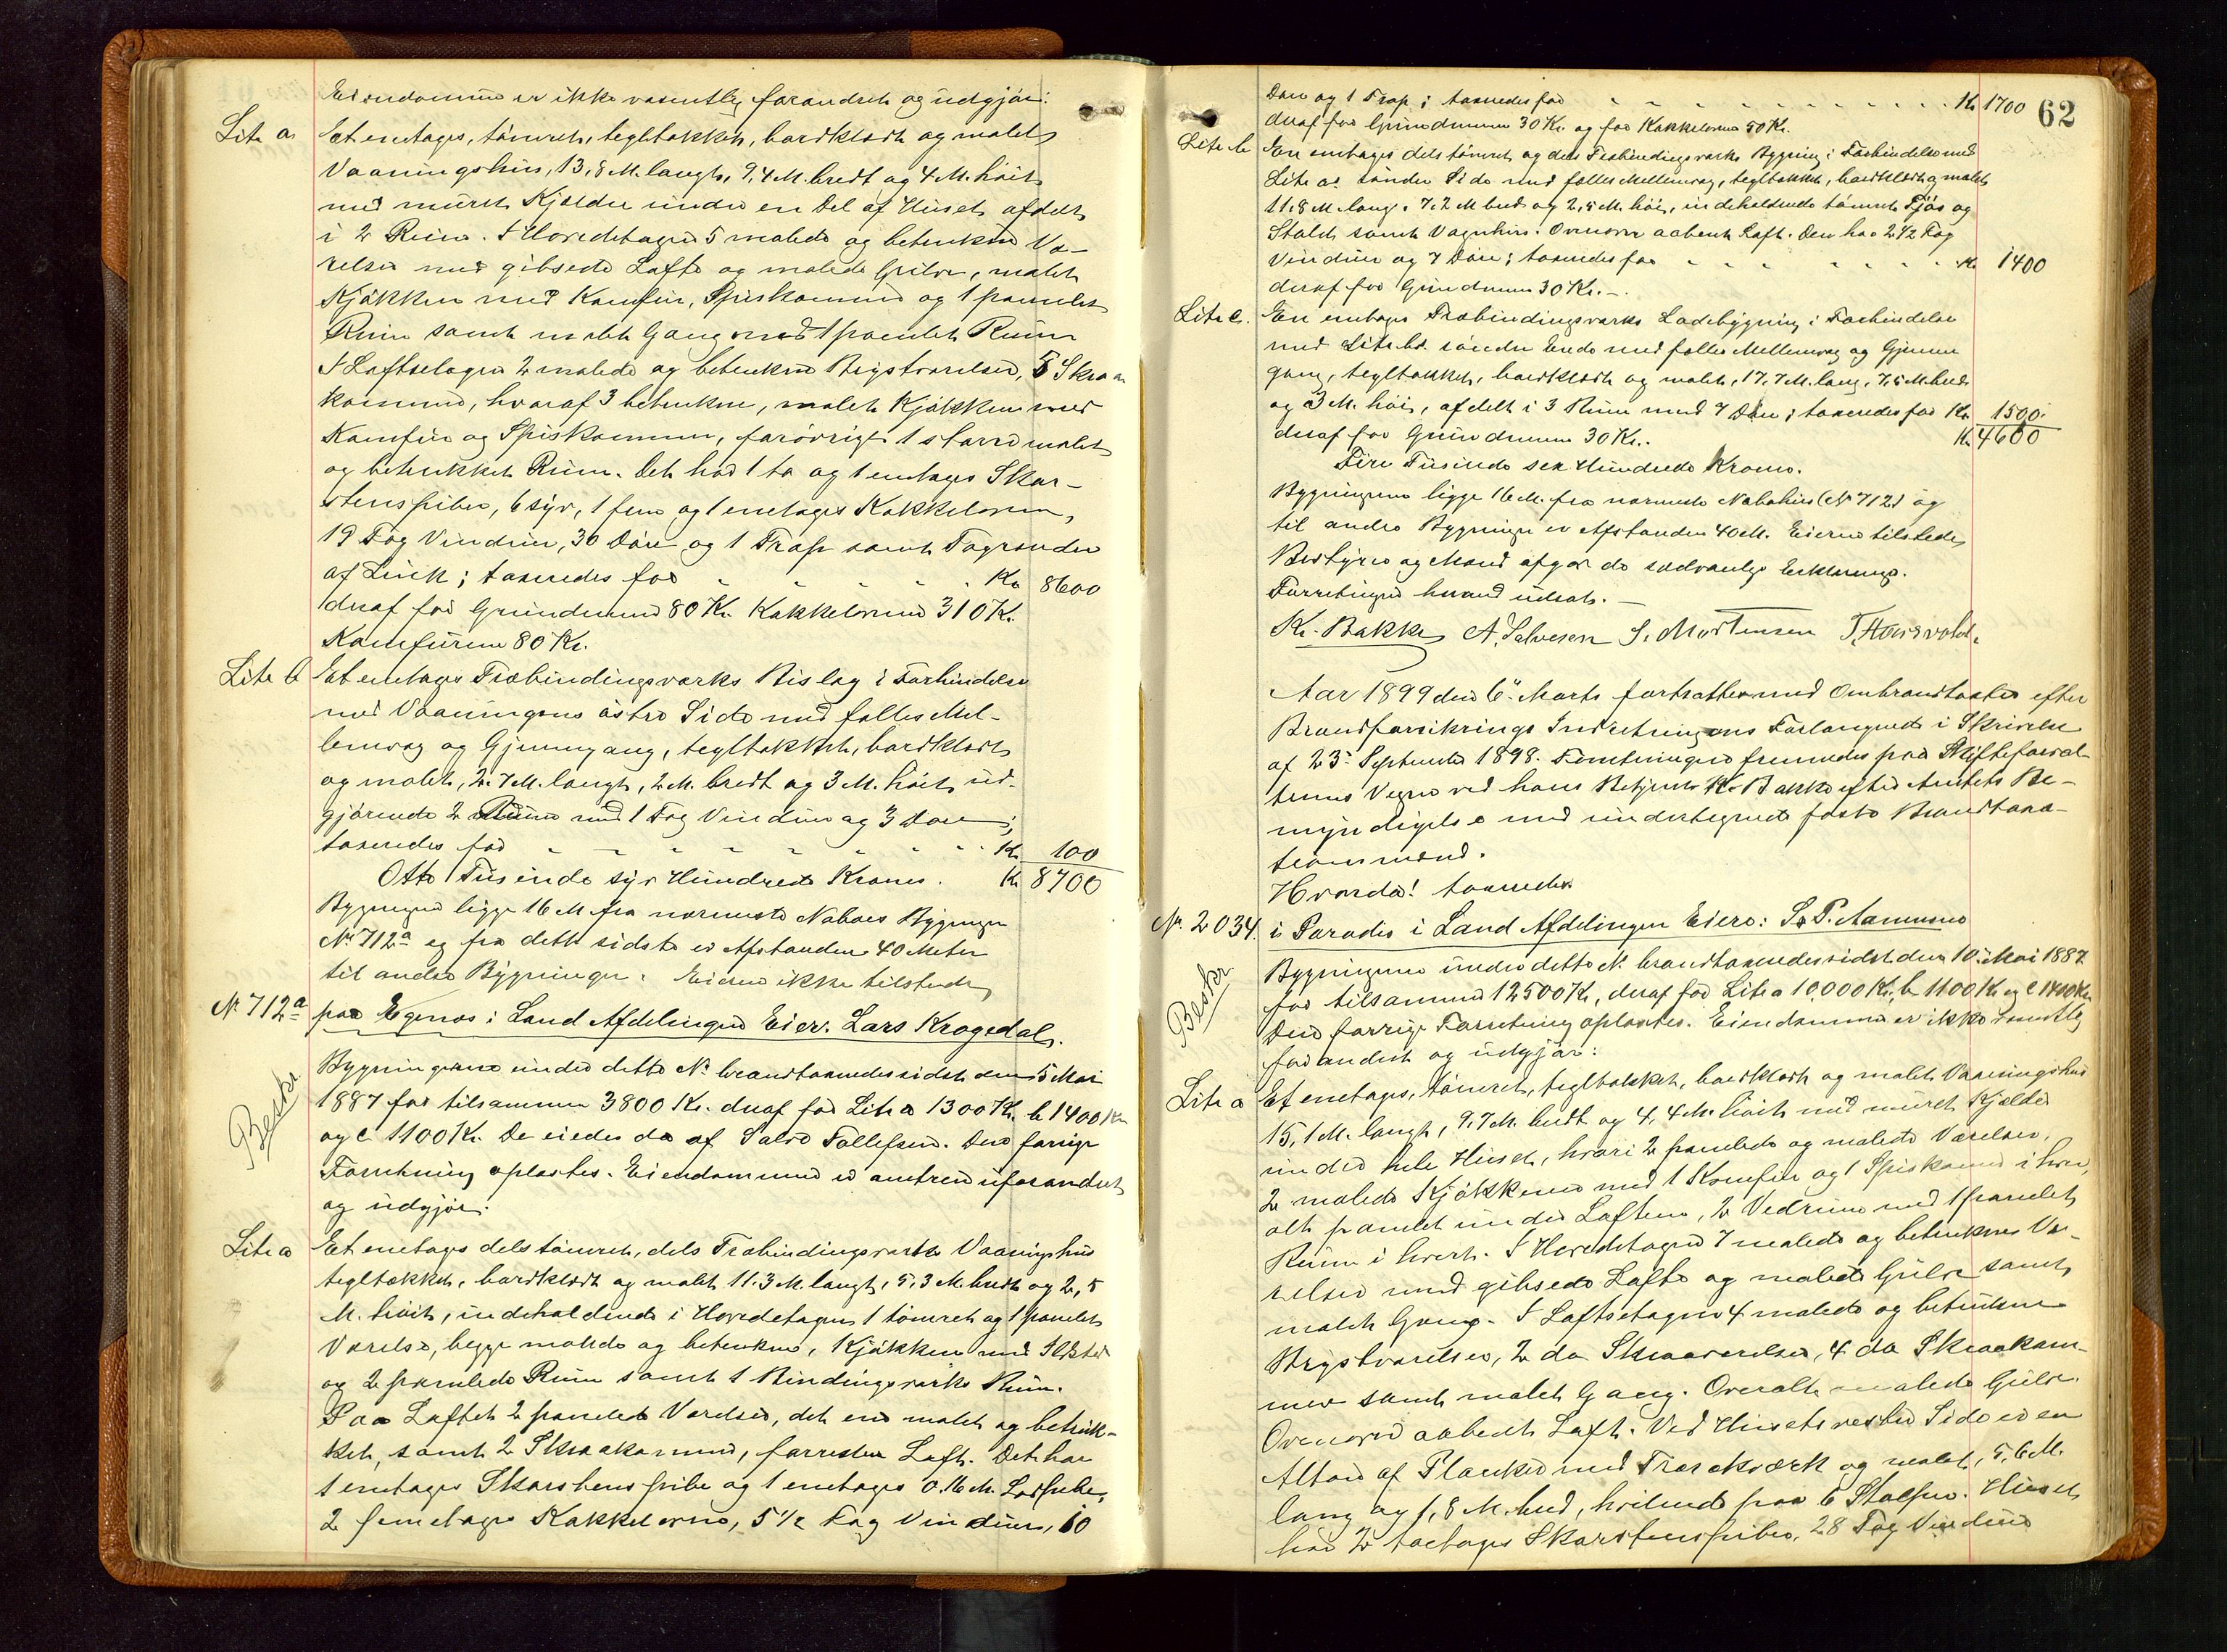 Eiendommen er ikke væsentlig forandret og udgjør:
Litr a. Et enetages, tømret, tegltækket, bordklædt og malet
Vaaningshus, 13,8 M. langt, 9,4 M. bredt og 4 M. høit
med muret Kjælder under en Del af Huset afdelt
i 2 Rum. I Hovedetagen 5 malede og betrukne Væ-
relser med gibsede Lofte og malede Gulve, malet
Kjøkken med Komfur, Spiskammer og 1 panelet
Rum samt malet Gang med 1 panelet Rum
I Loftsetagen 2 malede og betrukne Brystværelser, 5 Skraa
kammer, hvoraf 3 betrukne, malet Kjøkken med
Komfur og Spiskammer, forøvrigt 1 større malet
og betrukket Rum. Det har 1 to og 1 enetages Skor-
stenspiber, 6 syv, 1 fem og 1 enetages Kakkelovne,
19 Fag Vinduer, 30 Døre og 1 Trap samt Tagrender
af Zink; taxeredes for " " " " " Kr 8600
deraf for Grundmure 80 Kr. Kakkelovne 310 Kr.
Komfurene 80 Kr.
Litr b Et enetages Træbindingsværks Bislag i Forbindelse
med Vaaningens østre Side med fælles Mel-
lemvæg og Gjennemgang, tegltækket, bordklædt
og malet, 2,7 M. langt, 2 M. bredt og 3 M. høit ud-
gjørende 2 Rum med 1 Fag Vinduer og 3 Døre;
taxeredes for " " " " " " " Kr. 100
Otte Tusinde syv Hundrede Kroner. Kr 8700
Bygningen ligger 16 M fra nærmeste Naboes Bygninger
No 712a og fra dette sidste er Afstanden 40 Meter
til andre Bygninger. Eieren ikke tilstede
No 712a paa Egenæs i Land Afdelingen Eier. Lars Kragedal.
Beskr.
Bygningerne under dette No brandtaxeredes sidst den 5 Mai
1887 for tilsammen 3800 Kr. deraf for Litr a 1300 Kr. b 1400 Kr
og c 1100 Kr. De eiedes da af Salve Tollefsen. Den forrige
Forretning oplæstes. Eiendommen er omtrent uforandret
og udgjør:
Litr a Et enetages dels tømret, dels Træbindingsværks Vaaningshus
tegltækket, bordklædt og malet 11,3 M. langt, 5,3 M. bredt og 2,5
M. høit, indeholdende i Hovedetagen 1 tømret og 1 panelet
Værelse, begge malede og betrukne, 1 Kjøkken med Ildsted
og 2 panelede Rum samt 1 Bindingsværks Rum.
Paa Loftet 2 panelede Værelser, det ene malet og betruk-
ket, samt 2 Skraakammer, forresten Loft. Det har
1 enetages Skorstenspibe og 1 enetages 0.16 M.
2 femetages Kakkelovne, 5 1/2 Fag Vinduer, 10
62
Døre og 1 Trap; taxeredes for " " " " " " " " Kr 1700
deraf for Grundmuren 30 Kr. og for Kakkelovne 50 Kr.
Litr b En enetages dels tømret og dels Træbindingsværks Bygning i Forbindelse med
Litr a's søndre Side med fælles Mellemvæg, tegltækket, bordklædt og malet
11,8 M. lang, 7,2 M bred og 2,5 M. høi, indeholdende tømret Fjøs og
Stald samt Vognhus. Ovenover aabent Loft. Den har 2 1/2 Fag
Vinduer og 7 Døre; taxeredes for " " " " " " Kr 1400
deraf for Grundmure 30 Kr. -.
Litr c. En enetages Træbindingsværks Ladebygning i Forbindelse
med Litr b's søndre Ende med fælles Mellemvæg og Gjennem
gang, tegltækket, bordklædt og malet, 17,7 M. lang, 7,5 M. bred
og 3 M. høi, afdelt i 3 Rum med 7 Døre; taxeredes for Kr. 1500.
deraf for Grundmure 30 Kr. Kr 4600
Fire Tusinde sex Hundrede Kroner.
Bygningerne ligger 16 M. fra nærmeste Nabohus (No 712) og
til andre Bygninger er Afstanden 40 M. Eieren tilstede
Bestyrer og Mænd afgav de sædvanlige Erklæringer.
Forretningen herved udsat. —
Kr. Bakke A. Salvesen S. Mortensen T. Hausvold.
Aar 1899 den 6. Marts fortsattes med Ombrandtaxter efter
Brandforsikrings Indretningens Forlangende i Skrivelse
af 23. September 1898. Forretningen fremmedes paa Skifteforval
terens Vegne ved hans Betjent Kr. Bakke efter Amtets Be-
myndigelse med undertegnede faste Brandtaxa-
tionsmænd.
Hvorda! taxeredes
No. 2034. i Paradis i Land Afdelingen Eiere: S. P. Aanensen
Beskr.
Bygningerne under dette No. brandtaxeredes sidst den 10. Mai 1887
for tilsammen 12500 Kr, deraf for Litr a 10,000 Kr, b 1100 Kr og c 1400 Kr
Den forrige Forretning oplæstes. Eiendommen er ikke væsentlig
forandret og udgjør:
Litr a Et enetages, tømret, tegltækket, bordklædt og malet Vaaningshus
15,1 M. langt, 9,7 M. bredt og 4,4 M. høit med muret Kjælder
under hele Huset, hvori 2 panelede og malede Værelser,
2 malede Kjøkkener med 1 Komfur og 1 Spiskammer i hver,
alt panelet under Loftene, 2 Vedrum med 1 panelet
Rum i hvert. I Hovedetagen 7 malede og betrukne Væ-
relser med gibsede Lofte og malede Gulve samt
malet Gang. I Loftsetagen 4 malede og betrukne
Brystværelser, 2 do Skraaværelser, 4 do Skraakam-
mer samt malet Gang. Overalt malede Gulve.
Ovenover aabent Loft. Ved Husets vestre Side er en
Altan af Planker med Træværk og malet, 5,6 M.
lang og 1,8 M. bred, hvilende paa 6 Stolper. Huset
har 2 toetages Skorstenspiber, 28 Fag Vinduer